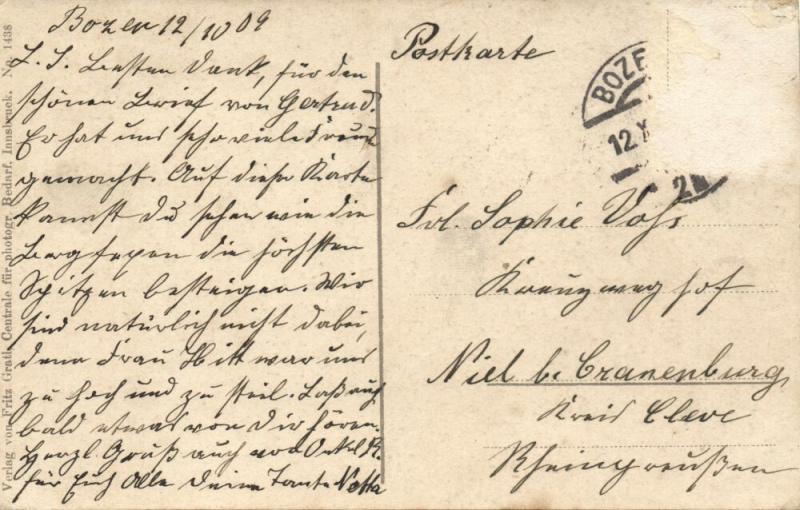 Bozen 12/10 09
L. S. Besten Dank, für den
schönen Brief von Gertrud.
Er hat uns sehr viele Freude
gemacht. Auf dieser Karte
kannst Du sehen wie die
Bergfexen die höchsten
Spitzen besteigen. Wir
sind natürlich nicht dabei,
denn Frau Hitt war uns
zu hoch und zu steil. Laß auch
bald etwas von Dir hören.
Herzl. Gruß auch von Onkel R.
für Euch Alle Deine Tante Netta
Postkarte
BOZE
12.X
2
Frl. Sophie Voss
Kreuzweg hof
Niel b. Cranenburg
Kreis Cleve
Rheinpreußen
Verlag von Fritz Gratl, Centrale für photogr. Bedarf, Innsbruck. No. 1438